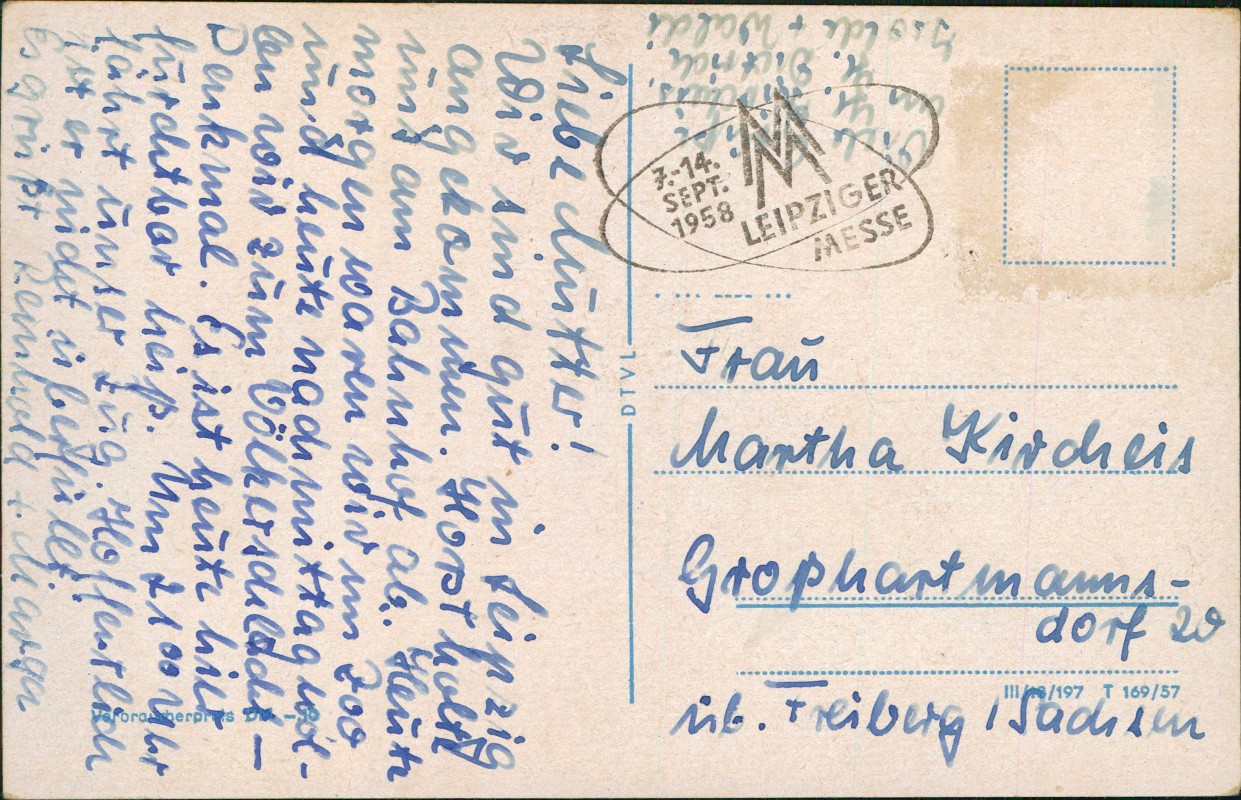 Liebe Mutter!
Wir sind gut in Leipzig
angekommen. Horst holte
uns am Bahnhof ab. Heute
morgen waren wir im Zoo
und heute nachmittag wol-
len wir zum Völkerschlacht-
Denkmal. Es ist heute hier
furchtbar heiß. Um 21 00 Uhr
fährt unser Zug. Hoffentlich
ist er nicht überfüllt.
Es grüßt Reinhard + Marga
Isolde + Waldi
7.-14.
SEPT.
1958
LEIPZIGER
MESSE
DTVL
Frau
Martha Kircheis
Großhartmanns-
dorf 20
üb. Freiberg / Sachsen
III/18/197 T 169/57
Verbraucherpreis DM